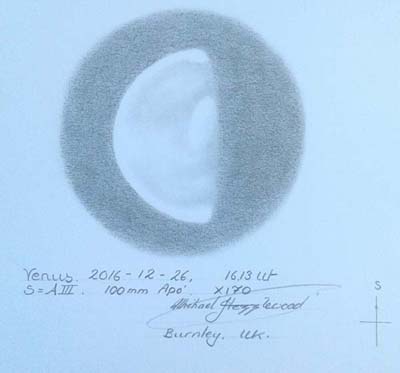 Venus. 2016-12-26. 16.13 ut
S = A.III. 100mm Apo. X170
S
Michael Hezzlewood
Burnley. UK.